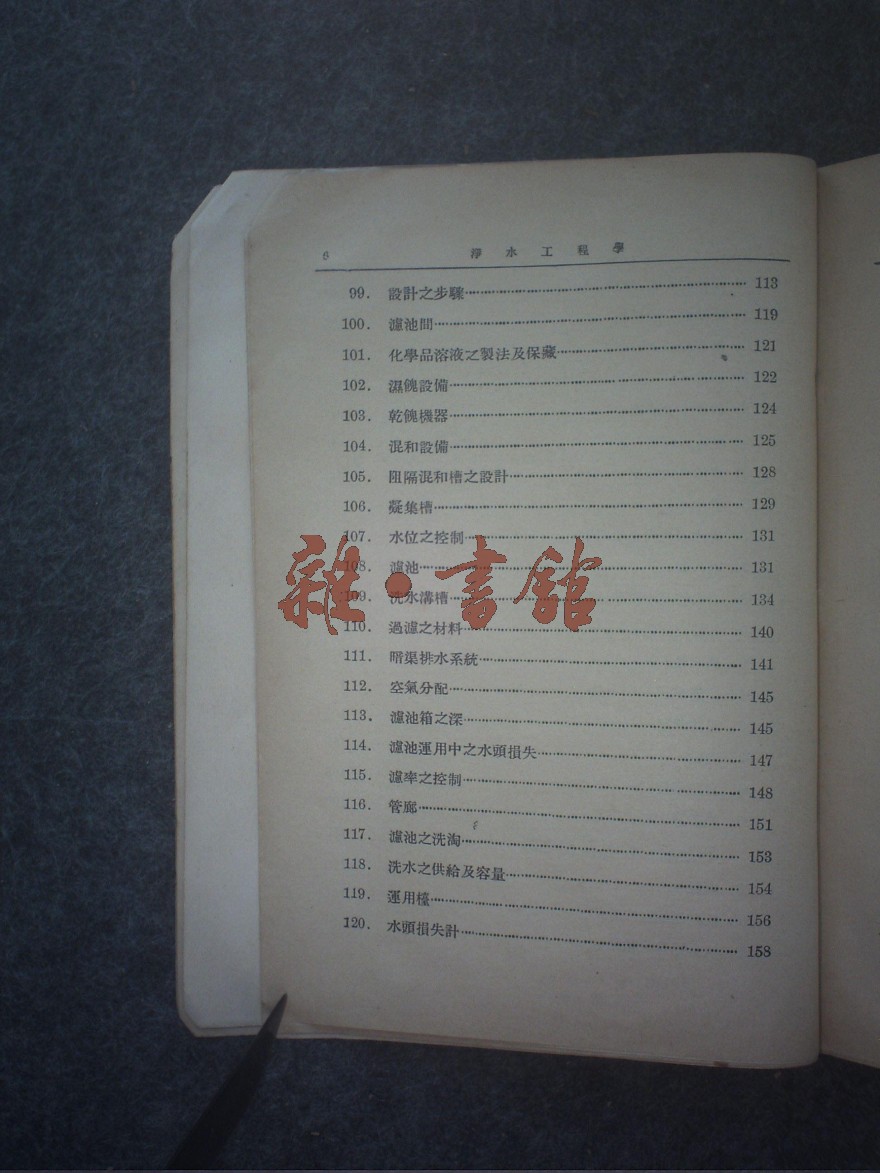 6 淨水工程學
99. 設計之步驟 113
100. 濾池間 119
101. 化學品溶液之製法及保藏 121
102. 濕餽設備 122
103. 乾餽機器 124
104. 混和設備 125
105. 阻隔混和槽之設計 128
106. 凝集槽 129
107. 水位之控制 131
108. 濾池 131
109. 洗水溝槽 134
110. 過濾之材料 140
111. 暗渠排水系統 141
112. 空氣分配 145
113. 濾池箱之深 145
114. 濾池運用中之水頭損失 147
115. 濾率之控制 148
116. 管廊 151
117. 濾池之洗淘 153
118. 洗水之供給及容量 154
119. 運用檯 156
120. 水頭損失計 158
雜·書館